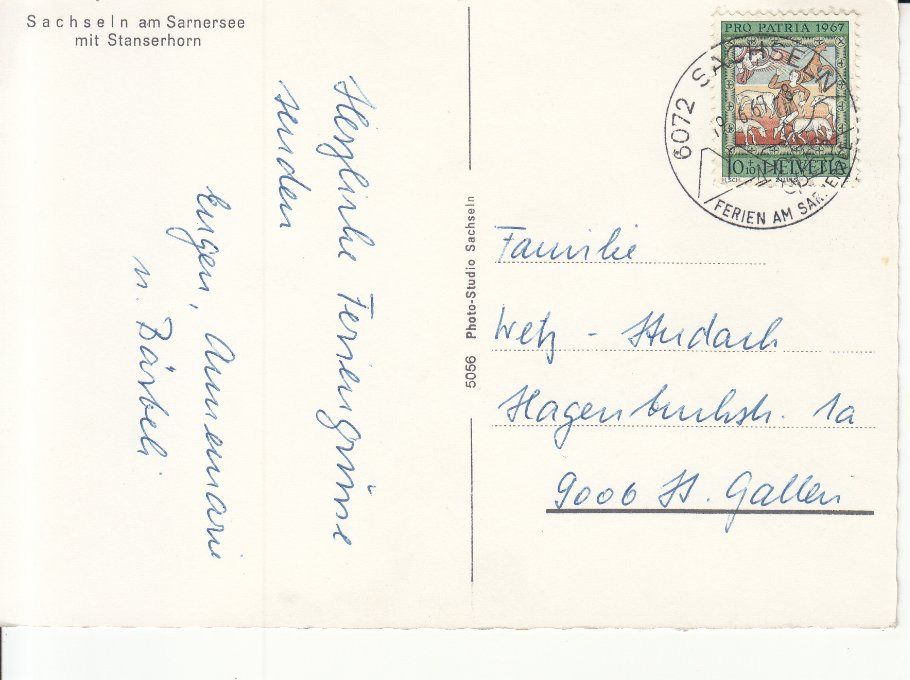 Sachseln am Sarnersee
mit Stanserhorn
Herzliche Feriengrüsse
senden
Eugen, Annemarie
u. Bärbeli
5056 Photo-Studio Sachseln
PRO PATRIA 1967
10+10 HELVETIA
6072 SACHSELN
FERIEN AM SARNERSEE
Familie
Wetz - Studach
Hagenbuchstr. 1a
9006 St. Gallen